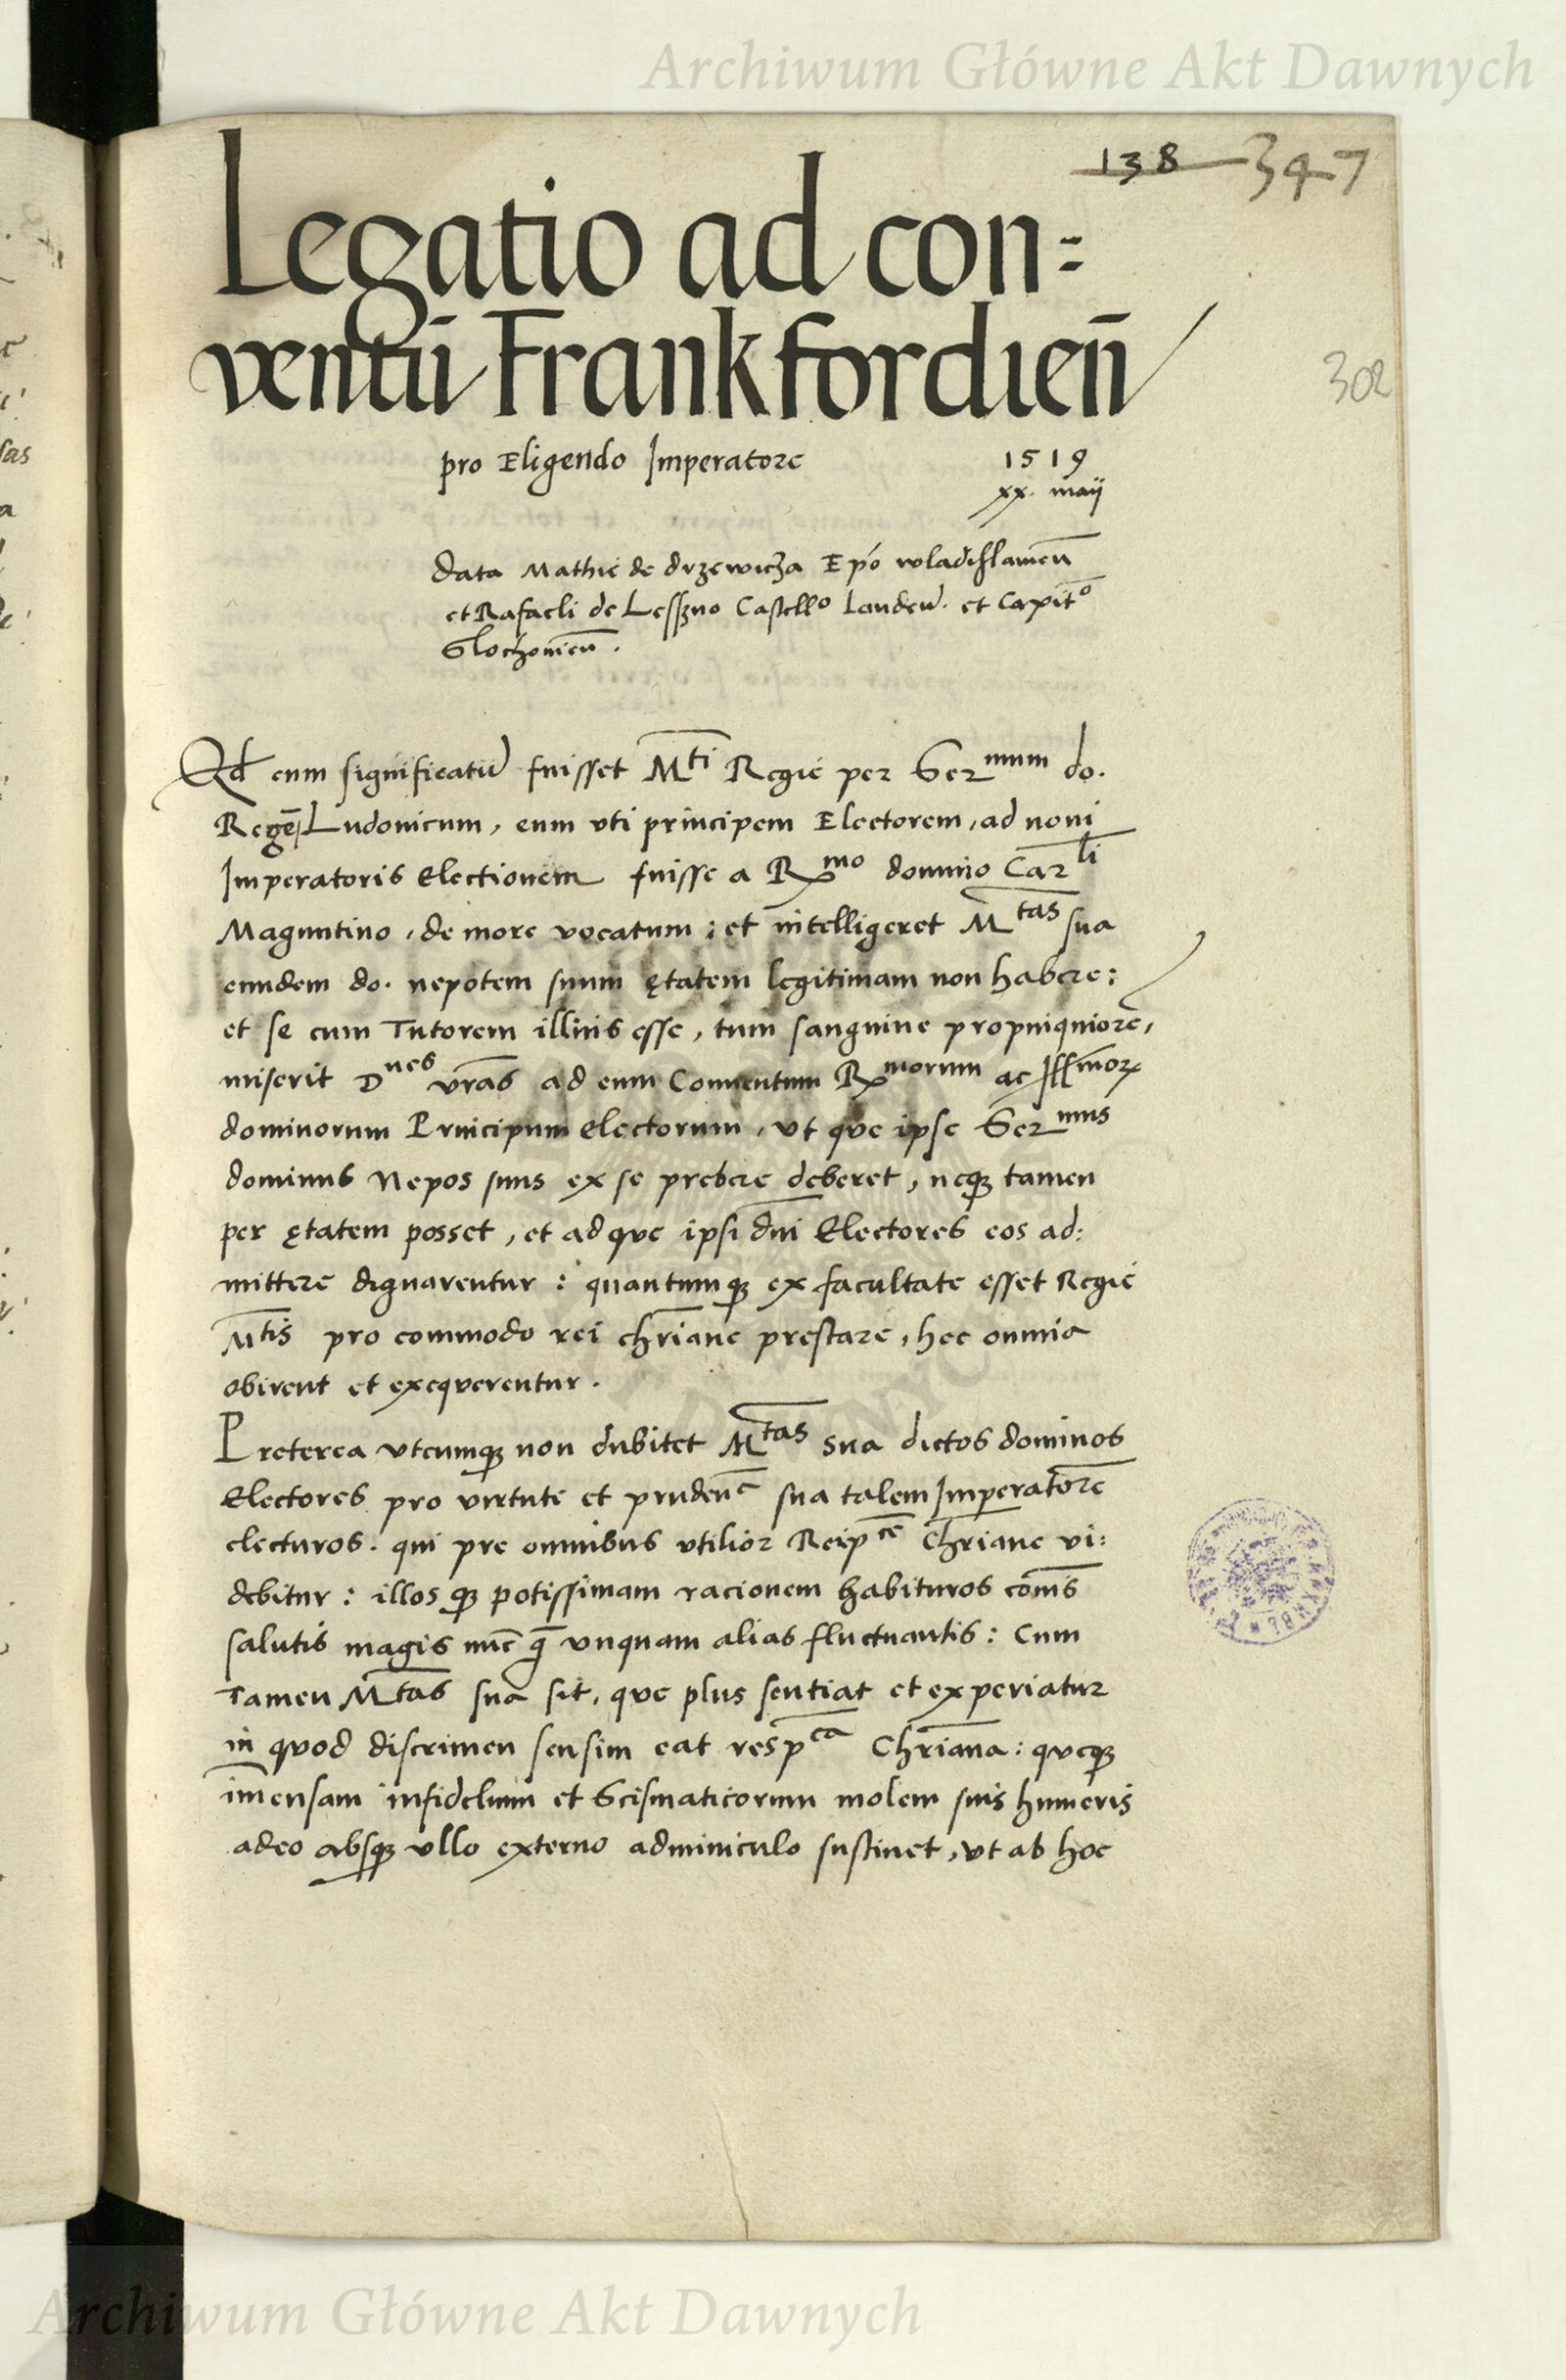 Archiwum Główne Akt Dawnych
138 347
Legatio ad con=
ventū Frankfordień
302
pro Eligendo Imperatore 1519
xx. maij
Data Mathie de drzewicza Epo wladislauień
et Rafaeli de Lesszno Castello Landeń. et Capito
Slochouień.
Qd cum significatū fuisset Mti Regie per Sermum do.
Regē Ludouicum, eum vti principem Electorem, ad noui
Imperatoris Electionem fuisse a Rmo domino Carli
Maguntino, de more vocatum: et intelligeret Mtas sua
eundem do. nepotem suum ętatem legitimam non habere:
et se cum Tutorem illius esse, tum sanguine propniquiorē,
miserit Dnes vras ad eum Conuentum Rmorum ac Illmorꝝ
dominorum Principum electorum, vt que ipse Sermus
dominus Nepos suus ex se prebere deberet, neqꝫ tamen
per ętatem posset, et ad que ipsi dni Electores eos ad:
mittere dignarentur: quantumqꝫ ex facultate esset Regie
Mtis pro commodo rei chriane prestare, hec omnia
obirent et exequerentur.
Preterea vtcumqꝫ non dubitet Mtas sua dictos dominos
Electores pro virtute et prudenc sua talem Imperatorē
electuros. qui pre omnibus vtilior Reipce Chriane vi:
debitur: illosqꝫ potissimam racionem habituros cōmis
salutis magis nūc q̄ vnquam alias fluctuantis: Cum
Tamen Mtas sua sit, que plus sentiat et experiatur
in quod discrimen sensim eat respca Chriana: queqꝫ
im̄ensam infidelium et Scismaticorum molem suis humeris
adeo absqꝫ vllo externo adminiculo sustinet, vt ab hoc
Archiwum Główne Akt Dawnych